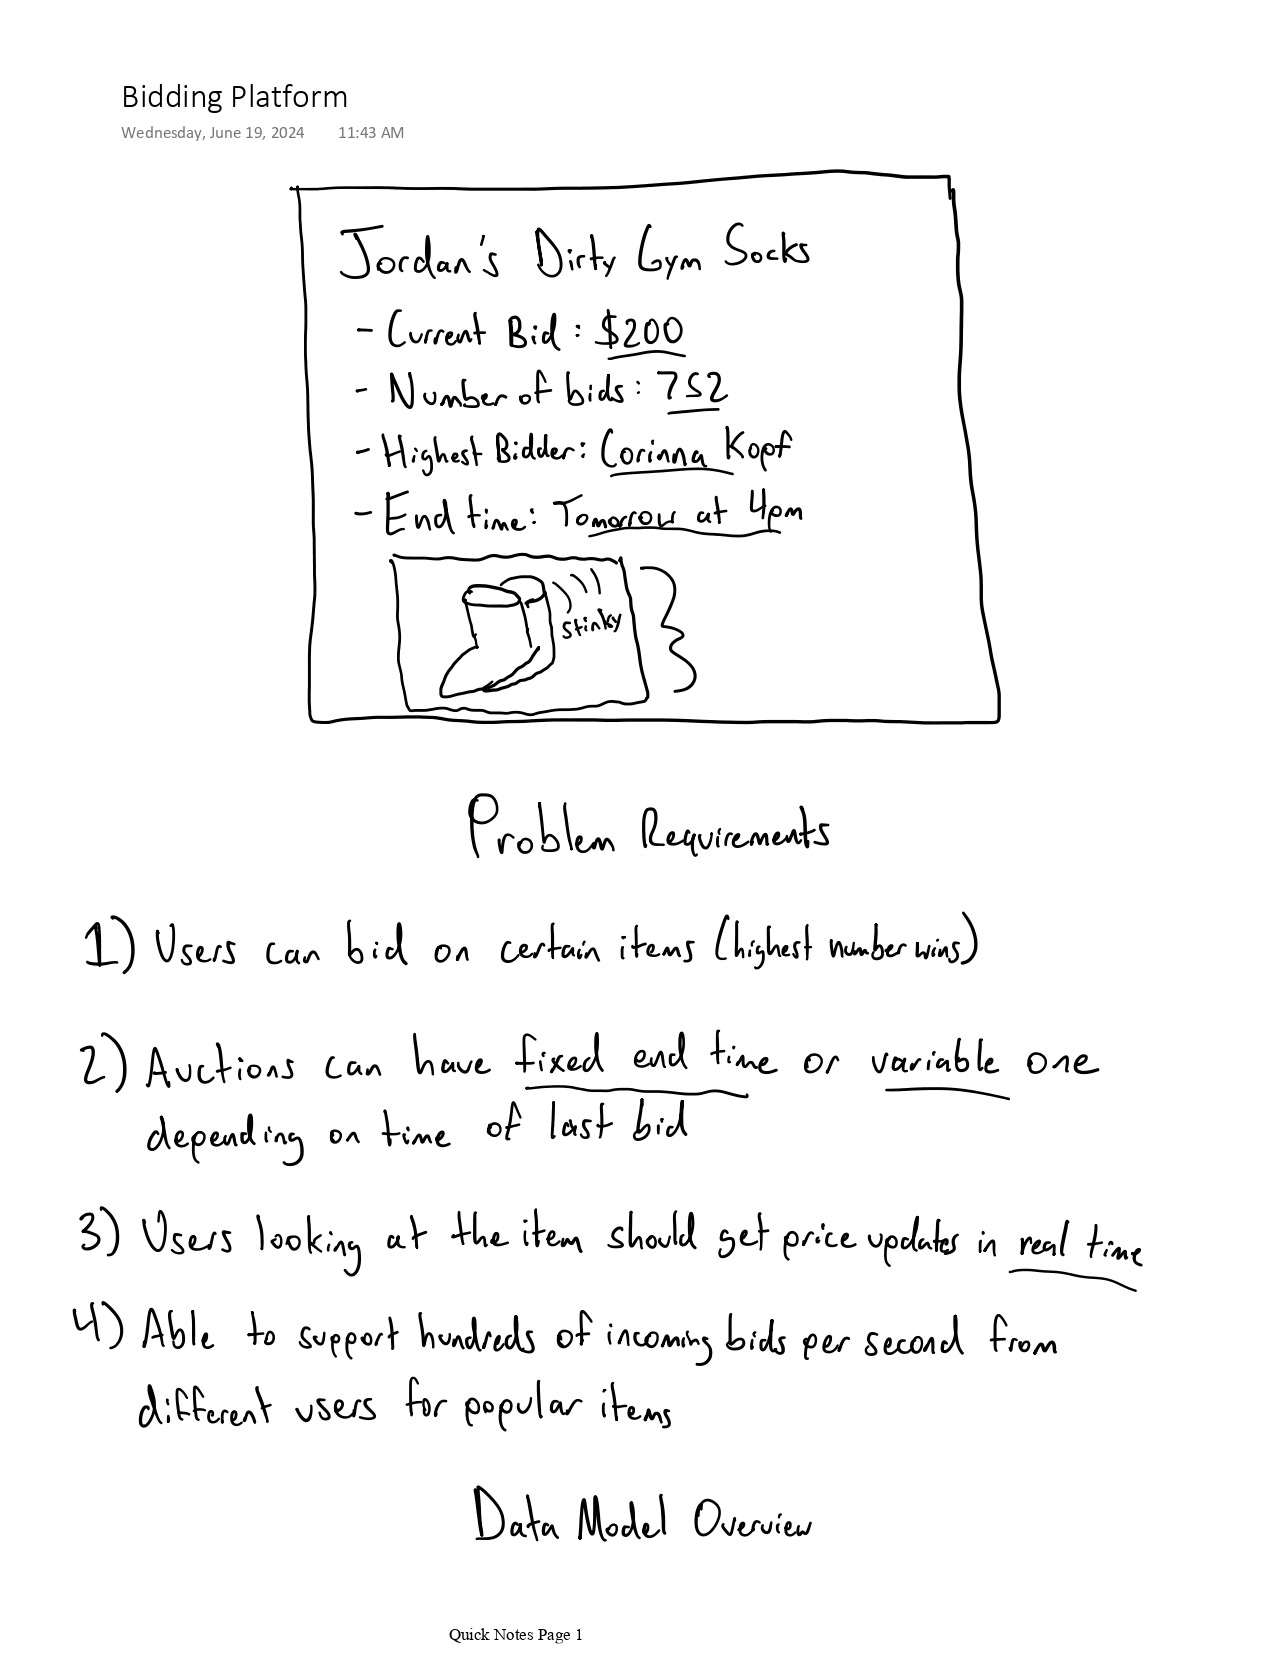 Bidding Platform
Wednesday, June 19, 2024 11:43 AM
Jordan's Dirty Gym Socks
- Current Bid: $200
- Number of bids: 752
- Highest Bidder: Corinna Kopf
- End time: Tomorrow at 4pm
stinky
Problem Requirements
1) Users can bid on certain items (highest number wins)
2) Auctions can have fixed end time or variable one
depending on time of last bid
3) Users looking at the item should get price updates in real time
4) Able to support hundreds of incoming bids per second from
different users for popular items
Data Model Overview
Quick Notes Page 1